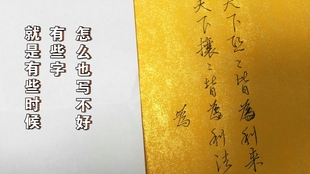 就是有些时候
有些字
怎么也写不好
天下熙〻皆為利来
天下攘〻皆為利往
為